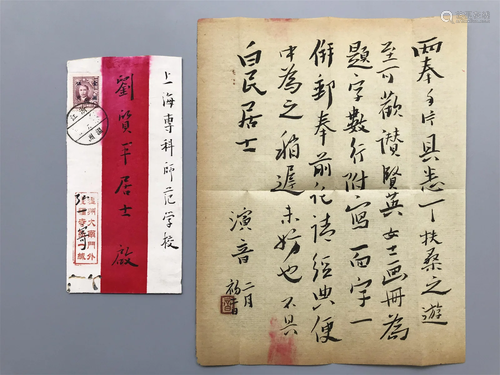 上海專科師范学校
劉質平居士 啟
温州大南門外
兩奉手片具悉一一扶桑之游
至可歡讚賢英女士画冊為
題字數行附寫一面字一
併郵奉前花請經典便
中為之稍遲未妨也不具
白民居士
演音
二月